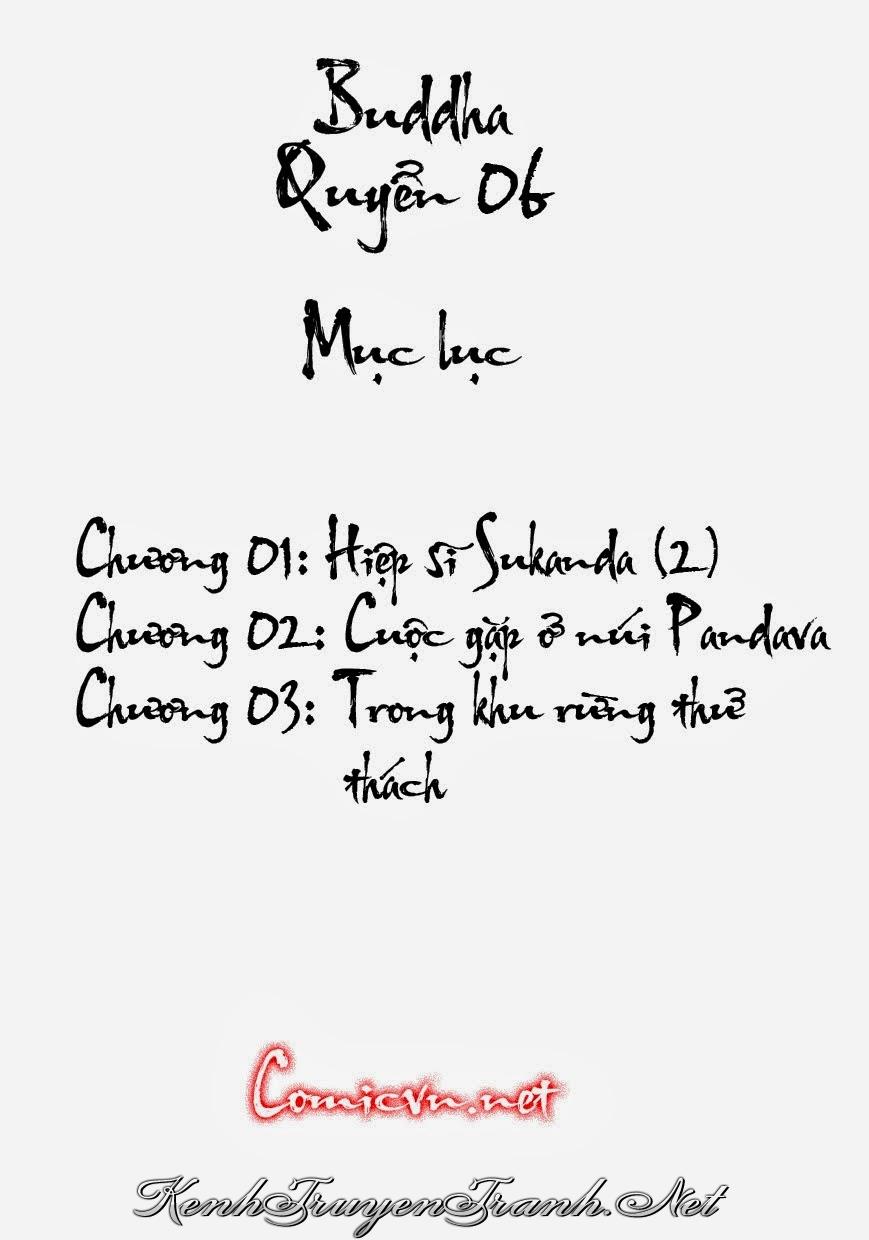 Buddha
Quyển 06
Mục lục
Chương 01: Hiệp sĩ Sukanda (2)
Chương 02: Cuộc gặp ở núi Pandava
Chương 03: Trong khu rừng thử
thách
Comicvn.net
KenhTruyenTranh.Net